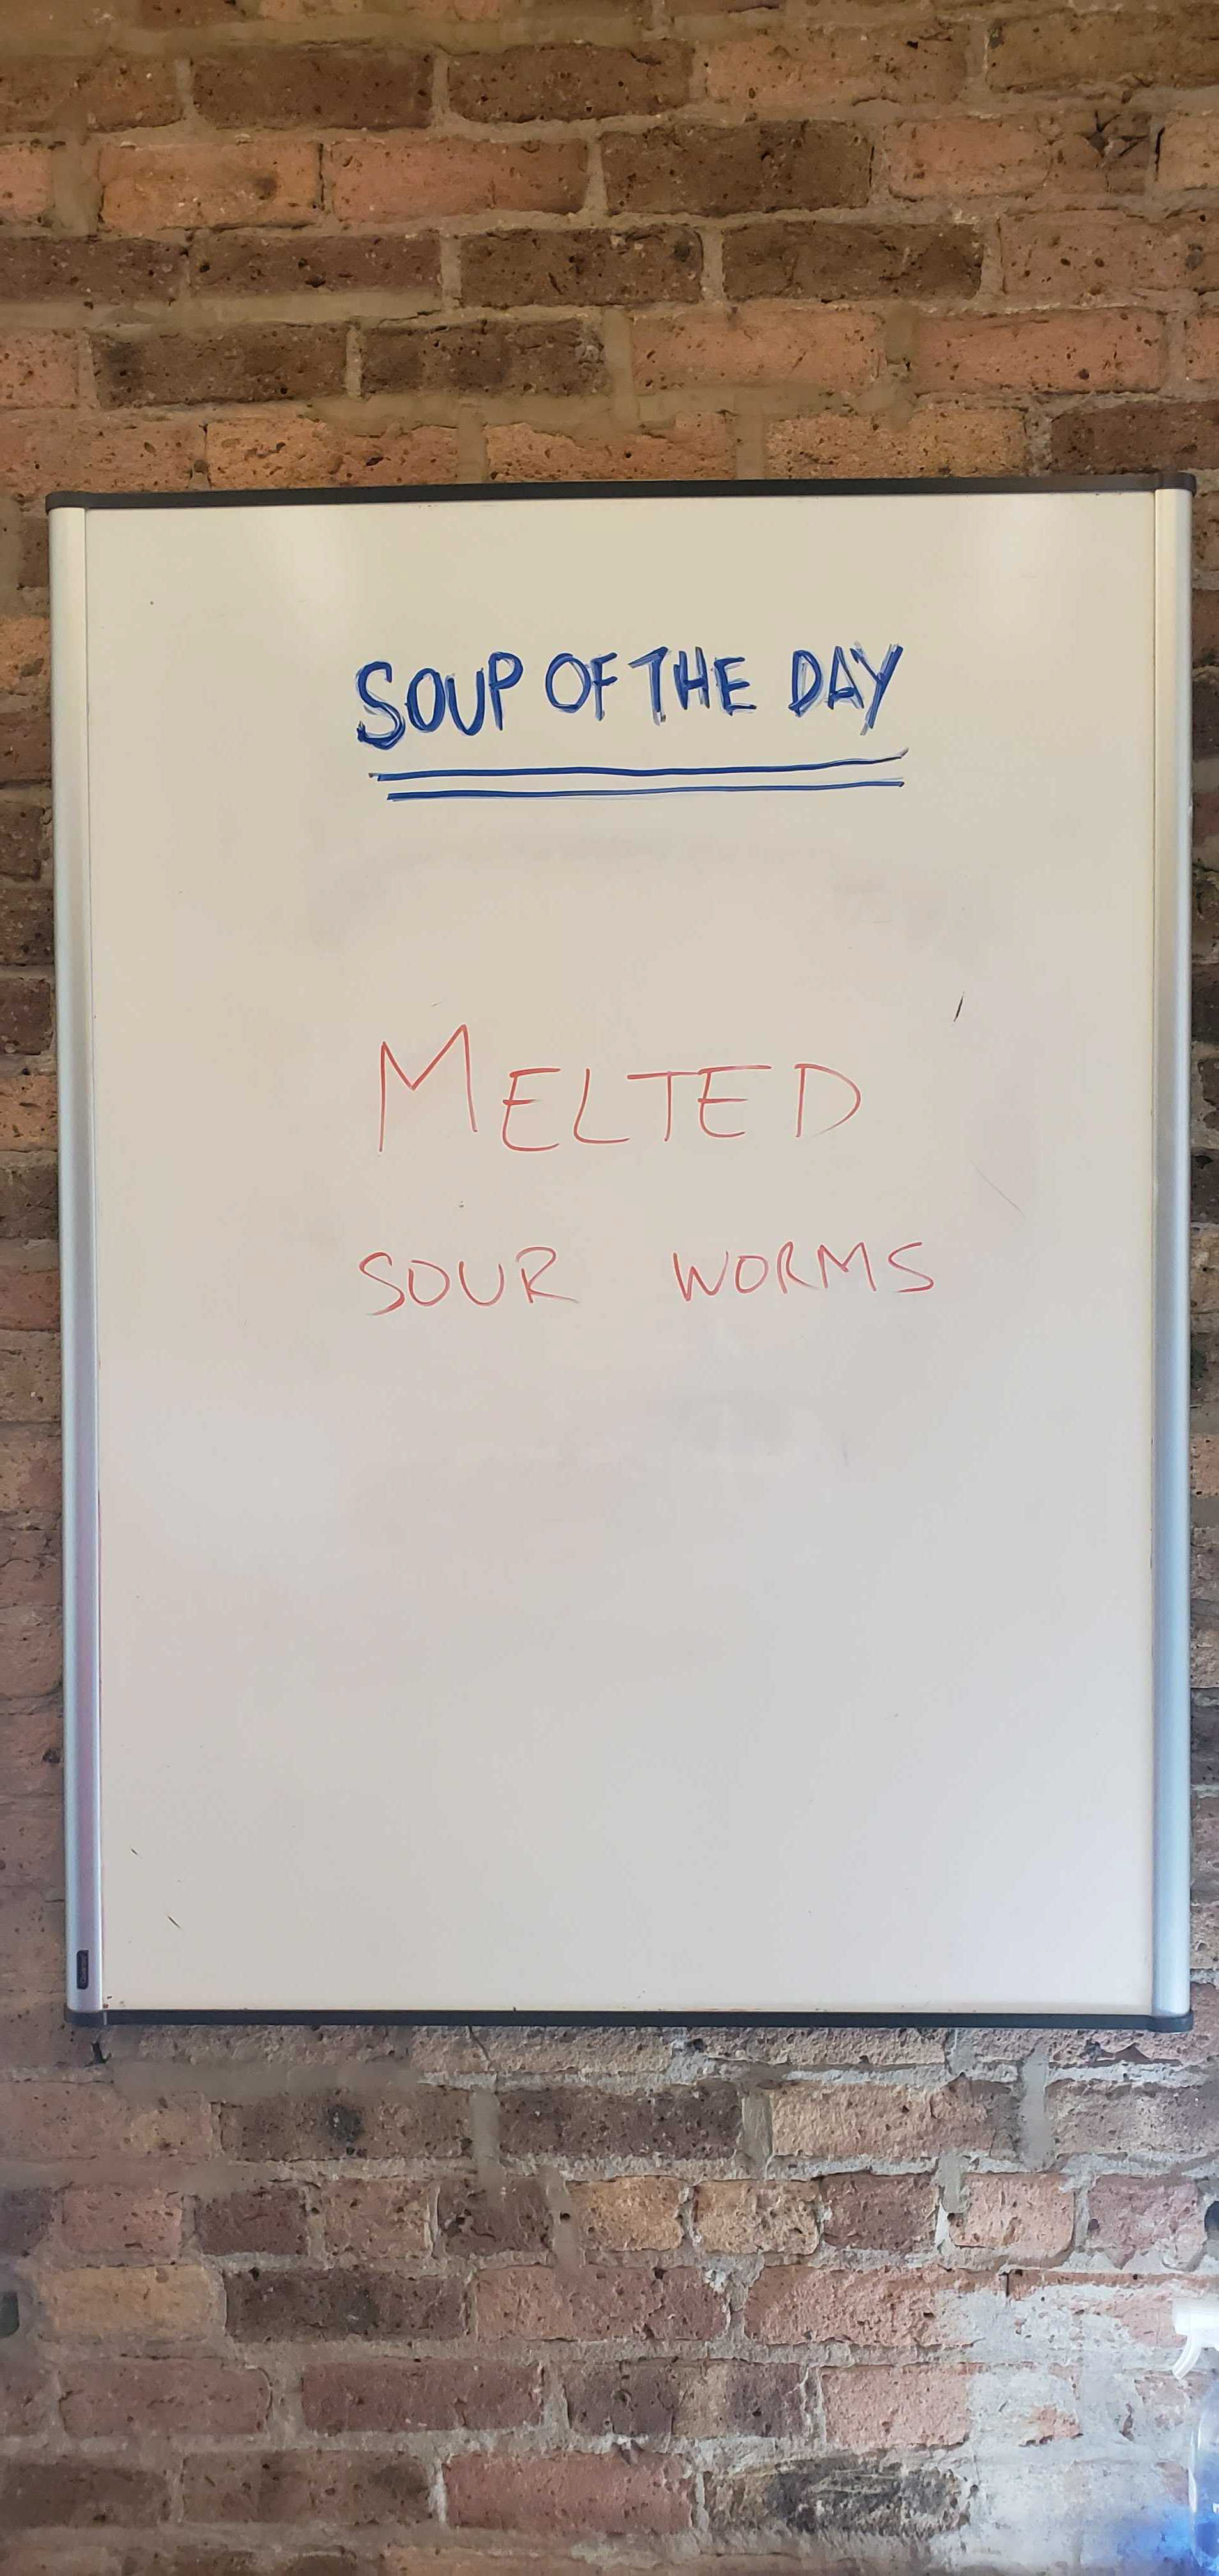 SOUP OF THE DAY
MELTED
SOUR WORMS